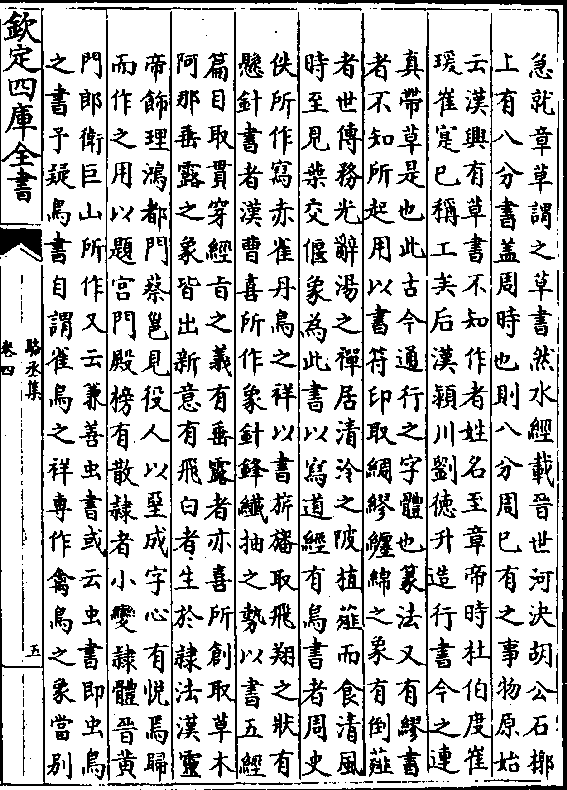 急就章草謂之草書然水經載晉世河決胡公石槨
上有八分書盖周時也則八分周已有之事物原始
云漢興有草書不知作者姓名至章帝時杜伯度崔
瑗崔寔已稱工矣后漢穎川劉德升造行書今之連
真帶草是也此古今通行之字體也篆法又有繆書
者不知所起用以書符印取綢繆纒綿之象有倒薤
者世傳務光辭湯之禪居清泠之陂植薤而食清風
時至見葉交偃象為此書以寫道經有鳥書者周史
佚所作寫赤雀丹鳥之祥以書旂旛取飛翔之狀有
懸針書者漢曹喜所作象針鋒纎抽之勢以書五經
篇目取貫穿經㫖之義有垂露者亦喜所創取草木
阿那垂露之象皆出新意有飛白者生於隸法漢靈
帝飾理鴻都門蔡邕見役人以堊成字心有悅焉歸
而作之用以題宮門殿榜有散隸者小變隸體晉黄
門郎衛巨山所作又云兼善虫書或云虫書即虫鳥
之書予疑鳥書自謂雀鳥之祥専作禽鳥之象當別
欽定四庫全書
駱丞集
卷四
五